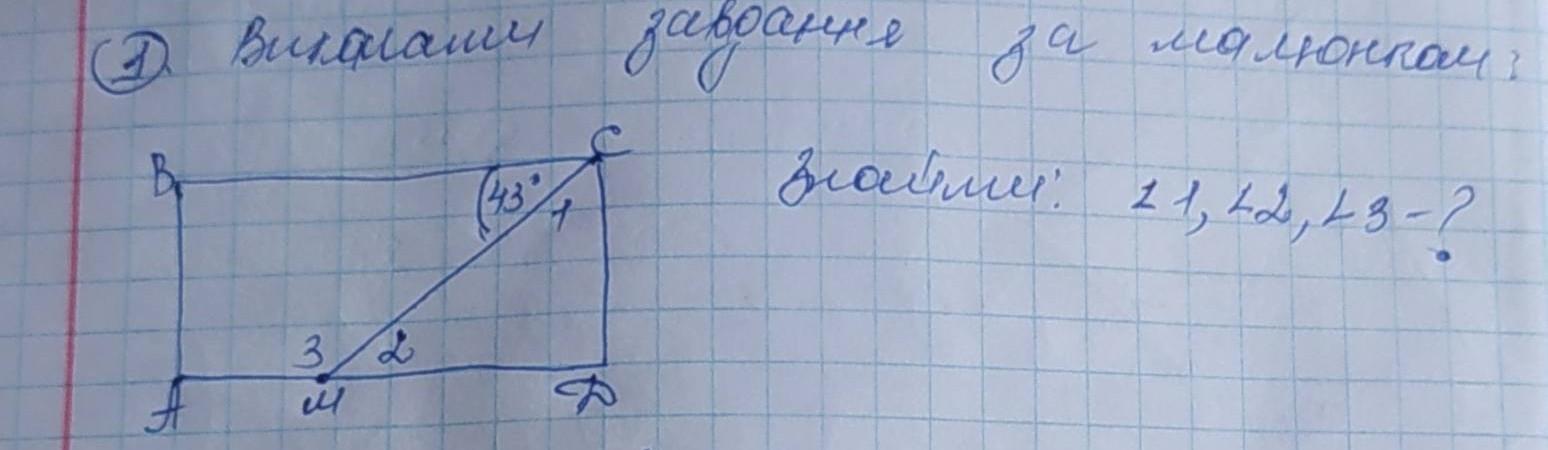 1. Виконати завдання за малюнком:
B C
43° 1
Знайти: ∠1, ∠2, ∠3 - ?
3 2
A M D